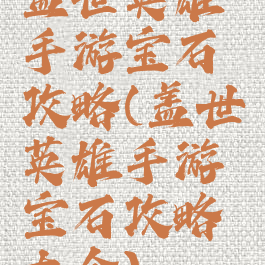 盖世英雄
手游宝石
攻略(盖世
英雄手游
宝石攻略
大全)